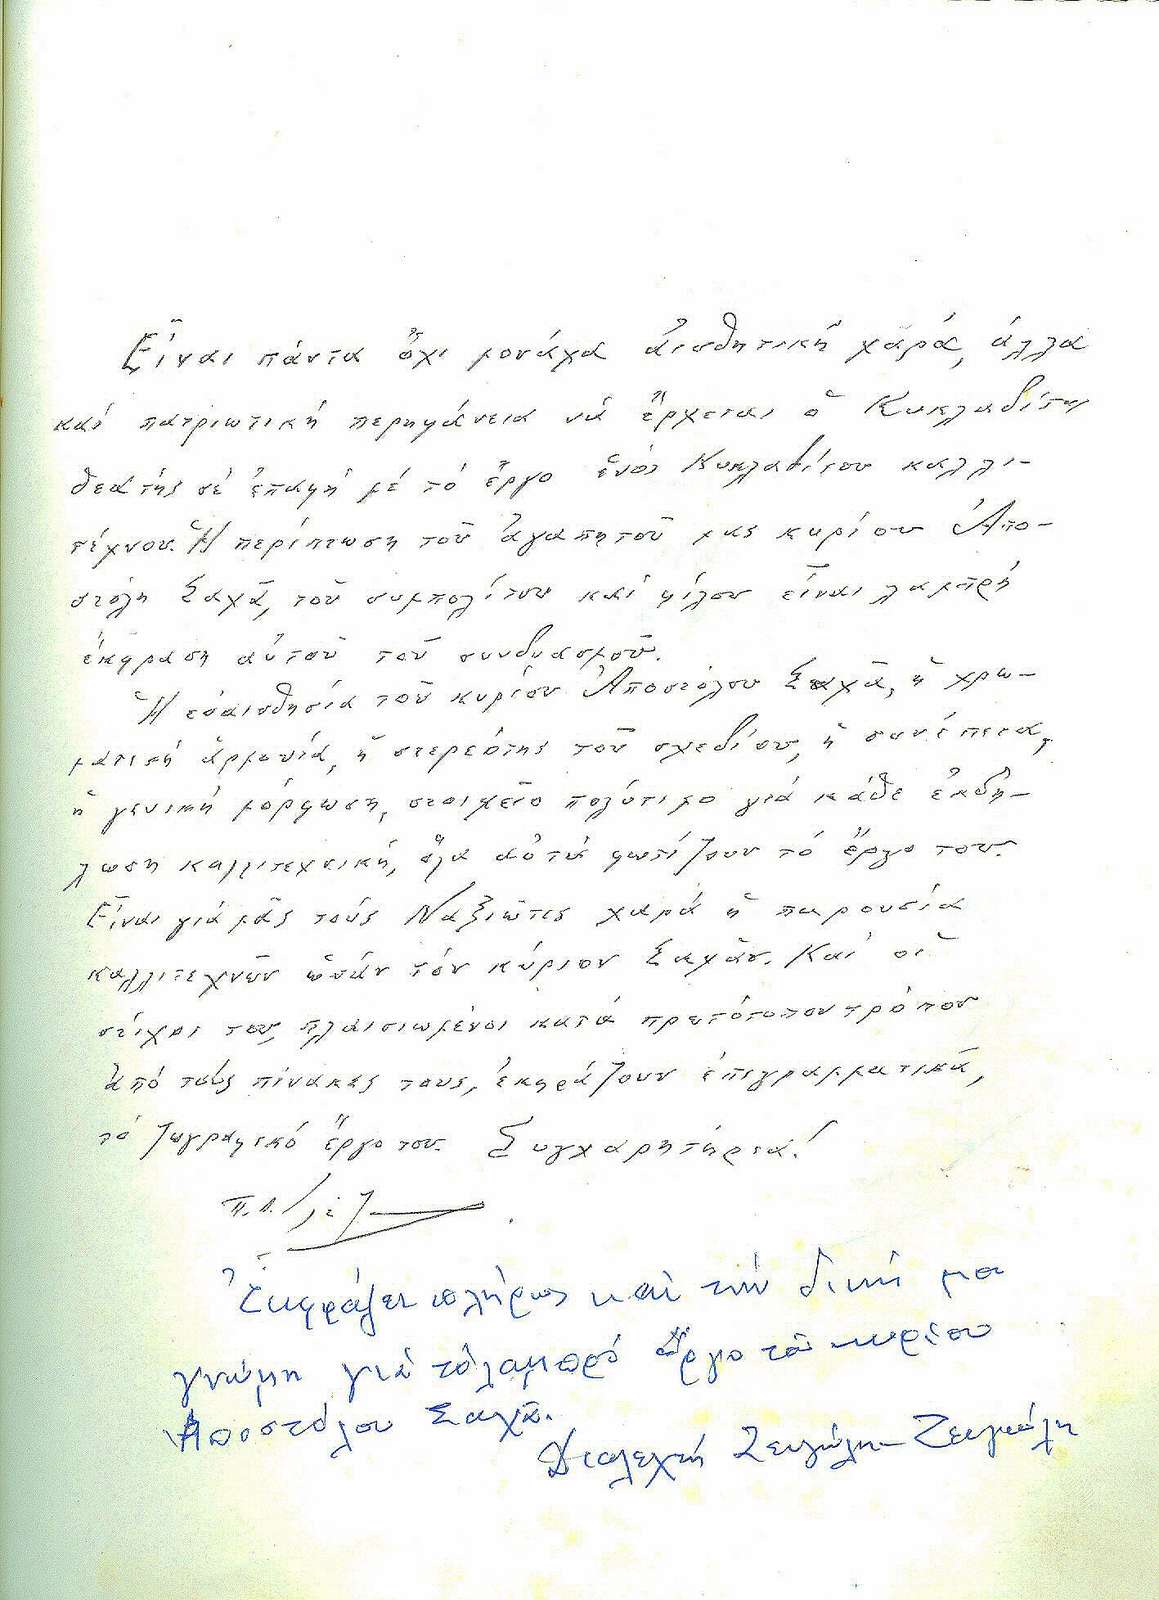 Εἶναι πάντα ὄχι μονάχα αἰσθητική χαρά, ἀλλά
καί πατριωτική περηφάνεια νά ἔρχεται ὁ Κυκλαδίτης
θεατής σέ ἐπαφή μέ τό ἔργο ἑνός Κυκλαδίτου καλλι-
τέχνου. Ἡ περίπτωση τοῦ ἀγαπητοῦ μας κυρίου Ἀπο-
στόλη Σαχᾶ, τοῦ συμπολίτου καί φίλου εἶναι λαμπρή
ἔκφραση αὐτοῦ τοῦ συνδυασμοῦ.
Ἡ εὐαισθησία τοῦ κυρίου Ἀποστόλου Σαχᾶ, ἡ χρω-
ματική ἁρμονία, ἡ στερεότης τοῦ σχεδίου, ἡ συνέπεια,
ἡ γενική μόρφωση, στοιχεῖο πολύτιμο γιά κάθε ἐκδή-
λωση καλλιτεχνική, ὅλα αὐτά φωτίζουν τό ἔργο του.
Εἶναι γιά μᾶς τούς Ναξιῶτες χαρά ἡ παρουσία
καλλιτεχνῶν ὡσάν τόν κύριον Σαχᾶν. Καί οἱ
στίχοι του, πλαισιωμένοι κατά πρωτότυπον τρόπον
ἀπό τούς πίνακές τους, ἐκφράζουν ἐπιγραμματικά,
τό ζωγραφικό ἔργο του. Συγχαρητήρια!
Ἐκφράζει πλήρως καί τήν δική μου
γνώμη γιά τό λαμπρό ἔργο τοῦ κυρίου
Ἀποστόλου Σαχᾶ.
Διαλεχτή Ζευγώλη-Γλέζου